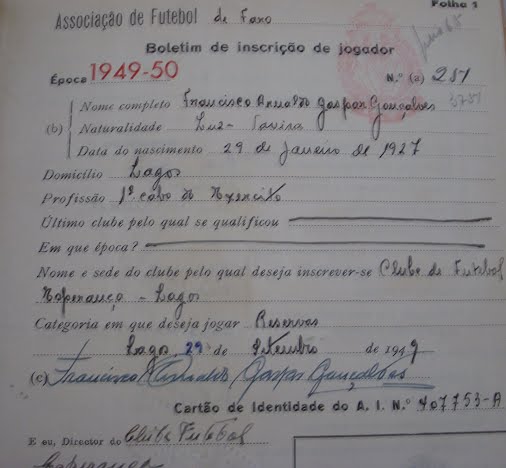 Folha 1
Associação de Futebol de Faro
Boletim de inscrição de jogador
Época 1949-50 N.º (a) 251
Nome completo Francisco Arnaldo Gaspar Gonçalves
(b) Naturalidade Luz - Tavira
Data do nascimento 29 de Janeiro de 1927
Domicílio Lagos
Profissão 1º cabo do Exercito
Último clube pelo qual se qualificou
Em que época?
Nome e sede do clube pelo qual deseja inscrever-se Clube de Futebol
Esperança - Lagos
Categoria em que deseja jogar Reservas
Lagos, 29 de Setembro de 1949
(c) Francisco Arnaldo Gaspar Gonçalves
Cartão de Identidade do A. I. N.º 407753-A
E eu, Director do Clube Futebol
Esperança